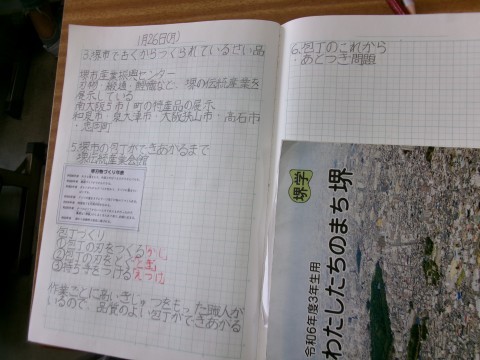 1月26日(月)
3.堺市で古くからつくられているせい品
堺市産業振興センター
刃物・線香・
など、堺の伝統産業を
展示している
南大阪5市1町の特産品の展示
和泉市・泉大津市・大阪狭山市・高石市
・忠岡町
5.堺市の包丁ができあがるまで
堺伝統産業会館
包丁づくり
①包丁の刃をつくる
②包丁の刃をとぐ
③持ち手をつける
作業ごとに高いぎじゅつをもった職人が
いるので、品質のよい包丁ができあがる
6.包丁のこれから
・あとつぎ問題
堺学
わたしたちのまち堺
令和6年度3年生用